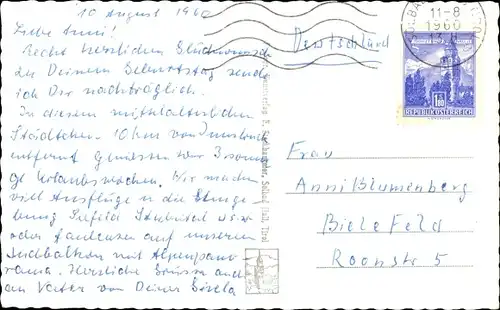 10 August 1960
Liebe Anni!
Recht herzlichen Glückwunsch
zu Deinem Geburtstag sende
ich Dir nachträglich.
In diesem mittelalterlichen
Städtchen 10 km von Innsbruck
entfernt geniessen wir 3 sonni-
ge Urlaubswochen. Wir machen
viel Ausflüge in die Umge-
bung Seefeld Stubaital usw
oder faulenzen auf unserem
Südbalkon mit Alpenpano-
rama. Herzliche Grüsse auch
an Vater von Deiner Gisela
Deutschland
11-8
1960
1.50
REPUBLIK ÖSTERREICH
Frau
Anni Blumenberg
Bielefeld
Roonstr 5
Solbad Hall, Tirol